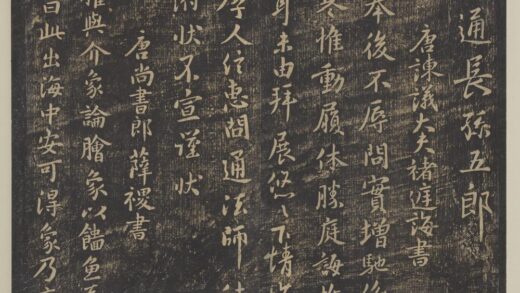 通長孫五郎
唐諫議大夫褚庭誨書
奉後不辱問實增馳
寒惟動履休勝庭誨
未由拜展悠々下情
孝人信惠問通法師
附狀不宣謹狀
唐尚書郎薛稷書
權與介象論膾象以鯔魚
曰此出海中安可得象乃